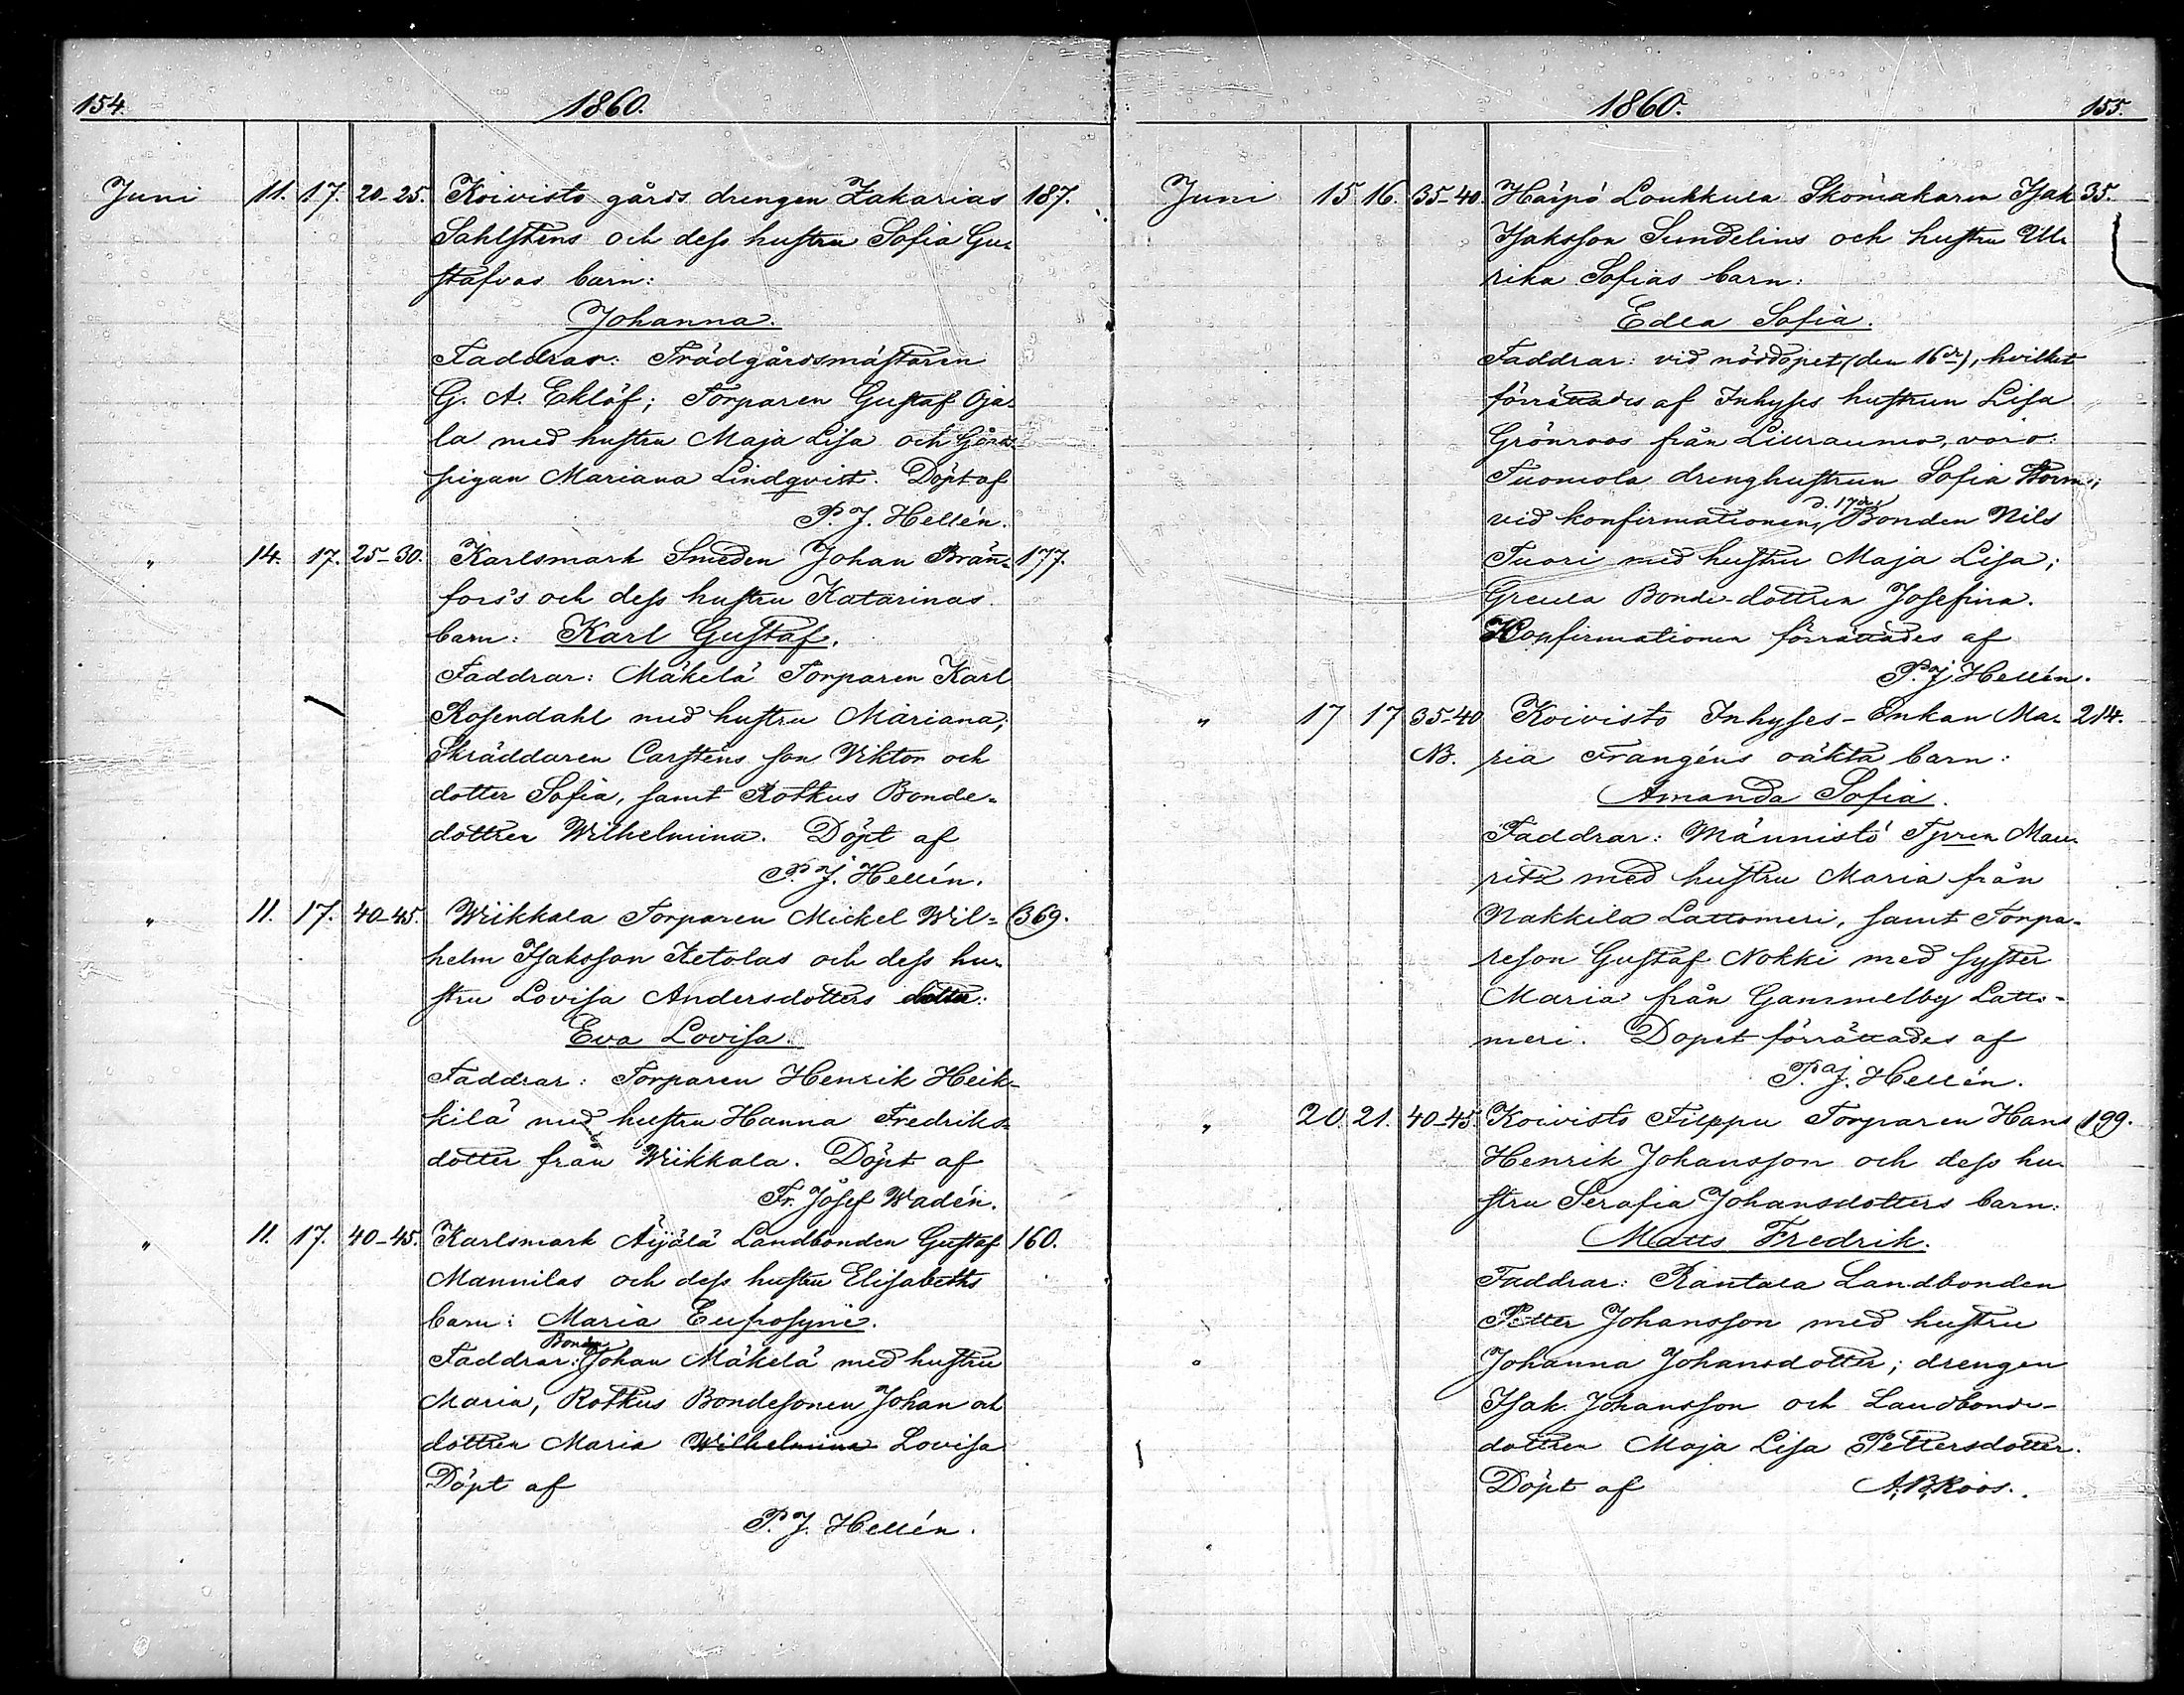 154. 1860.
Juni 11. 17. 20-25. Koivisto gårds drengen Zakarias 187.
Sahlstens och dess hustru Sofia Gu-
stafvas barn:
Johanna.
Faddrar: Trädgårdsmästaren
G. A. Eklöf; Torparen Gustaf Oja-
la med hustru Maja Lisa och Gårds-
pigan Mariana Lindqvist. Döpt af
P. J. Hellén.
" 14. 17. 25-30. Karlsmark Smeden Johan Brän- 177.
fors's och dess hustru Katarinas
barn: Karl Gustaf.
Faddrar: Mäkelä Torparen Karl
Rosendahl med hustru Mariana;
Skräddaren Carstens son Viktor och
dotter Sofia, samt Rotkus Bonde-
dottren Wilhelmina. Döpt af
P. J. Hellén.
" 11. 17. 40-45. Wiikkala Torparen Mickel Wil- 369.
helm Isaksson Ketolas och dess hu-
stru Lovisa Andersdotters dotter:
Eva Lovisa.
Faddrar: Torparen Henrik Heik-
kilä med hustru Hanna Fredriks-
dotter från Wiikkala. Döpt af
Fr. Josef Wadén.
" 11. 17. 40-45. Karlsmark Äijälä Landbonden Gustaf 160.
Mannilas och dess hustru Elisabeths
barn: Maria Euprosyne.
Bonden
Faddrar: Johan Mäkelä med hustru
Maria, Rotkus Bondesonen Johan och
dottren Maria Wilhelmina Lovisa
Döpt af
P. J. Hellén.
1860. 155.
Juni 15 16. 35-40. Häipö Loukkula Skomakaren Isak 35.
Isaksson Sundelins och hustru Ul-
rika Sofias barn:
Edla Sofia.
Faddrar: vid nöddopet (den 16de), hvilket
förrättades af Inhyses hustrun Lisa
Grönroos från Lilleraumo, voro:
Tuomola drenghustrun Sofia
d. 17de
vid konfirmationen, Bonden Nils
Tuori med hustru Maja Lisa;
Greula Bonde-dottren Josefina.
Konfirmationen förrättades af
P. J. Hellén.
" 17 17 35-40 Koivisto Inhyses-Enkan Ma- 214.
NB. ria Frangéns oäkta barn:
Amanda Sofia.
Faddrar: Männistö Tprn Mau-
ritz med hustru Maria från
Nakkila Lattomeri, samt Torpa-
reson Gustaf Nokki med syster
Maria från Gammelby Latto-
meri. Dopet förrättades af
P. J. Hellén.
" 20. 21. 40-45. Koivisto Filppu Torparen Hans 199.
Henrik Johansson och dess hu-
stru Serafia Johansdotters barn:
Matts Fredrik.
Faddrar: Rantala Landbonden
Petter Johansson med hustru
Johanna Johansdotter; drengen
Isak Johansson och Landbonde-
dottren Maja Lisa Pettersdotter.
Döpt af A. B. Roos.